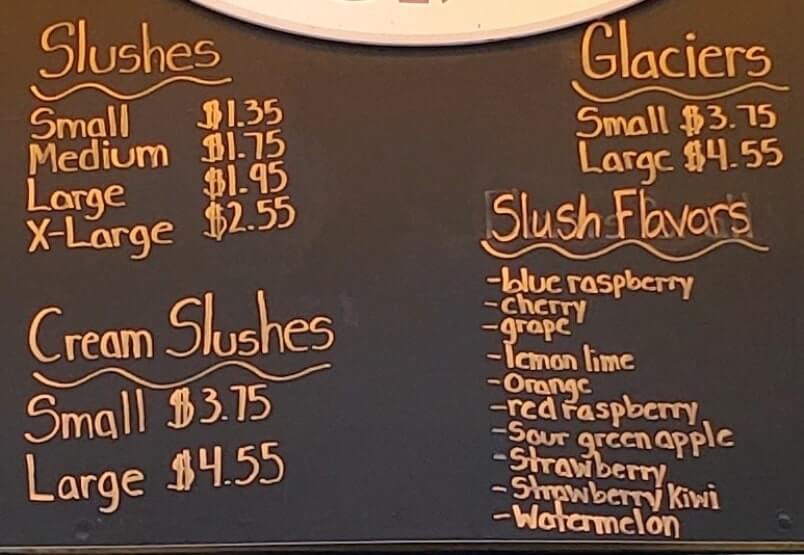 Slushes
Small $1.35
Medium $1.75
Large $1.95
X-Large $2.55
Cream Slushes
Small $3.75
Large $4.55
Glaciers
Small $3.75
Large $4.55
Slush Flavors
-blue raspberry
-cherry
-grape
-lemon lime
-Orange
-red raspberry
-Sour green apple
-Strawberry
-Strawberry Kiwi
-Watermelon